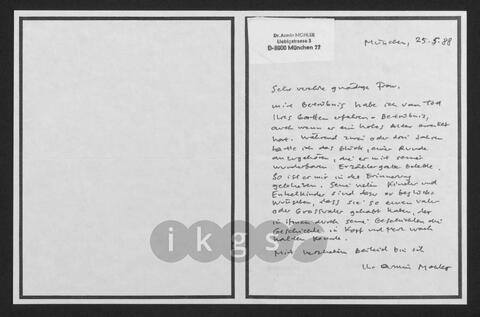 Dr. Armin MOHLER
Liebigstrasse 3
D-8000 München 22
München, 25.5.88
Sehr verehrte gnädige Frau,
mit Betrübnis habe ich vom Tod
Ihres Gatten erfahren – Betrübnis,
auch wenn er ein hohes Alter erreicht
hat. Während zwei oder drei Jahren
hatte ich das Glück, einer Runde
anzugehören, die er mit seiner
wunderbaren Erzählergabe belebte.
So ist er mir in der Erinnerung
geblieben. Seine vielen Kinder und
Enkelkinder sind dazu zu beglück-
wünschen, dass sie so einen Vater
oder Grossvater gehabt haben, der
in ihnen durch seine Geschichten die
Geschichte in Kopf und Herz wach
halten konnte.
Mit herzlichem Beileid bin ich
Ihr Armin Mohler
ikgs